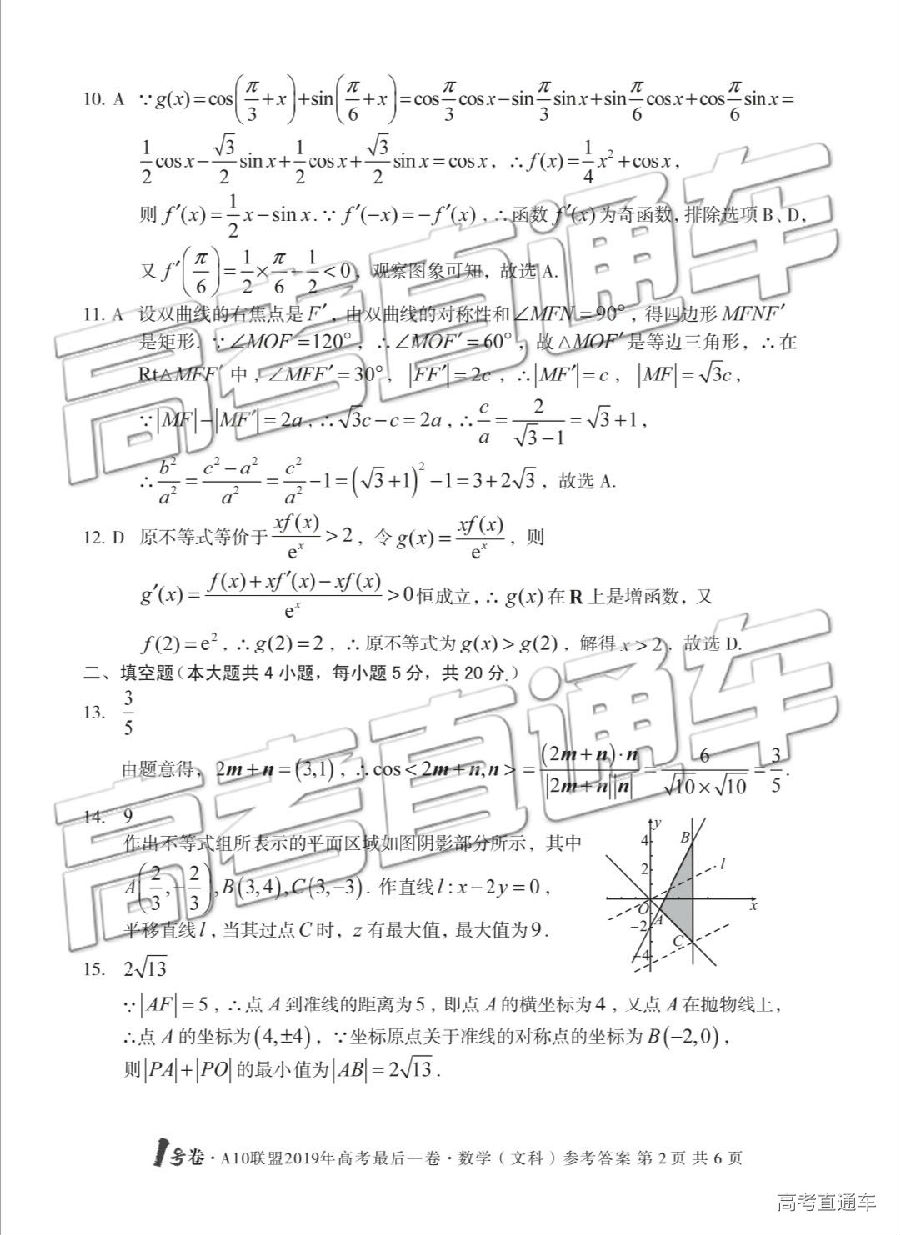 10. A ∵g(x)=cos(π/3+x)+sin(π/6+x)=cos π/3 cos x−sin π/3 sin x+sin π/6 cos x+cos π/6 sin x=
1/2 cos x−√3/2 sin x+1/2 cos x+√3/2 sin x=cos x, ∴f(x)=1/4 x²+cos x,
则 f′(x)=1/2 x−sin x.∵ f′(−x)=−f′(x), ∴函数 f′(x)为奇函数,排除选项 B、D,
又 f′(π/6)=1/2×π/6−1/2<0, 观察图象可知, 故选 A.
11. A 设双曲线的右焦点是 F′, 由双曲线的对称性和∠MFN=90°, 得四边形 MFNF′
是矩形. ∵∠MOF=120°, ∴∠MOF′=60°, 故△MOF′是等边三角形, ∴在
Rt△MFF′中, ∠MFF′=30°, |FF′|=2c, ∴|MF′|=c, |MF|=√3c,
∵|MF|−|MF′|=2a, ∴√3c−c=2a, ∴c/a=2/(√3−1)=√3+1,
∴b²/a²=(c²−a²)/a²=c²/a²−1=(√3+1)²−1=3+2√3, 故选 A.
12. D 原不等式等价于 xf(x)/eˣ>2, 令 g(x)=xf(x)/eˣ, 则
g′(x)=(f(x)+xf′(x)−xf(x))/eˣ>0恒成立, ∴ g(x)在 R 上是增函数, 又
f(2)=e², ∴g(2)=2, ∴原不等式为 g(x)>g(2), 解得 x>2, 故选 D.
二、填空题(本大题共 4 小题, 每小题 5 分, 共 20 分.)
13. 3/5
由题意得, 2m+n=(3,1), ∴cos<2m+n,n>=(2m+n)·n/|2m+n||n|=6/(√10×√10)=3/5.
14. 9
作出不等式组所表示的平面区域如图阴影部分所示, 其中
A(2/3,−2/3),B(3,4),C(3,−3). 作直线 l:x−2y=0,
平移直线 l, 当其过点 C 时, z 有最大值, 最大值为 9.
y
4
B
2
l
O
A
x
−2
C
−4
15. 2√13
∵|AF|=5, ∴点 A 到准线的距离为 5, 即点 A 的横坐标为 4, 又点 A 在抛物线上,
∴点 A 的坐标为(4,±4), ∵坐标原点关于准线的对称点的坐标为 B(−2,0),
则|PA|+|PO|的最小值为|AB|=2√13.
1号卷·A10联盟2019年高考最后一卷·数学(文科)参考答案 第 2 页 共 6 页
高考直通车
高考直通车
高考直通车